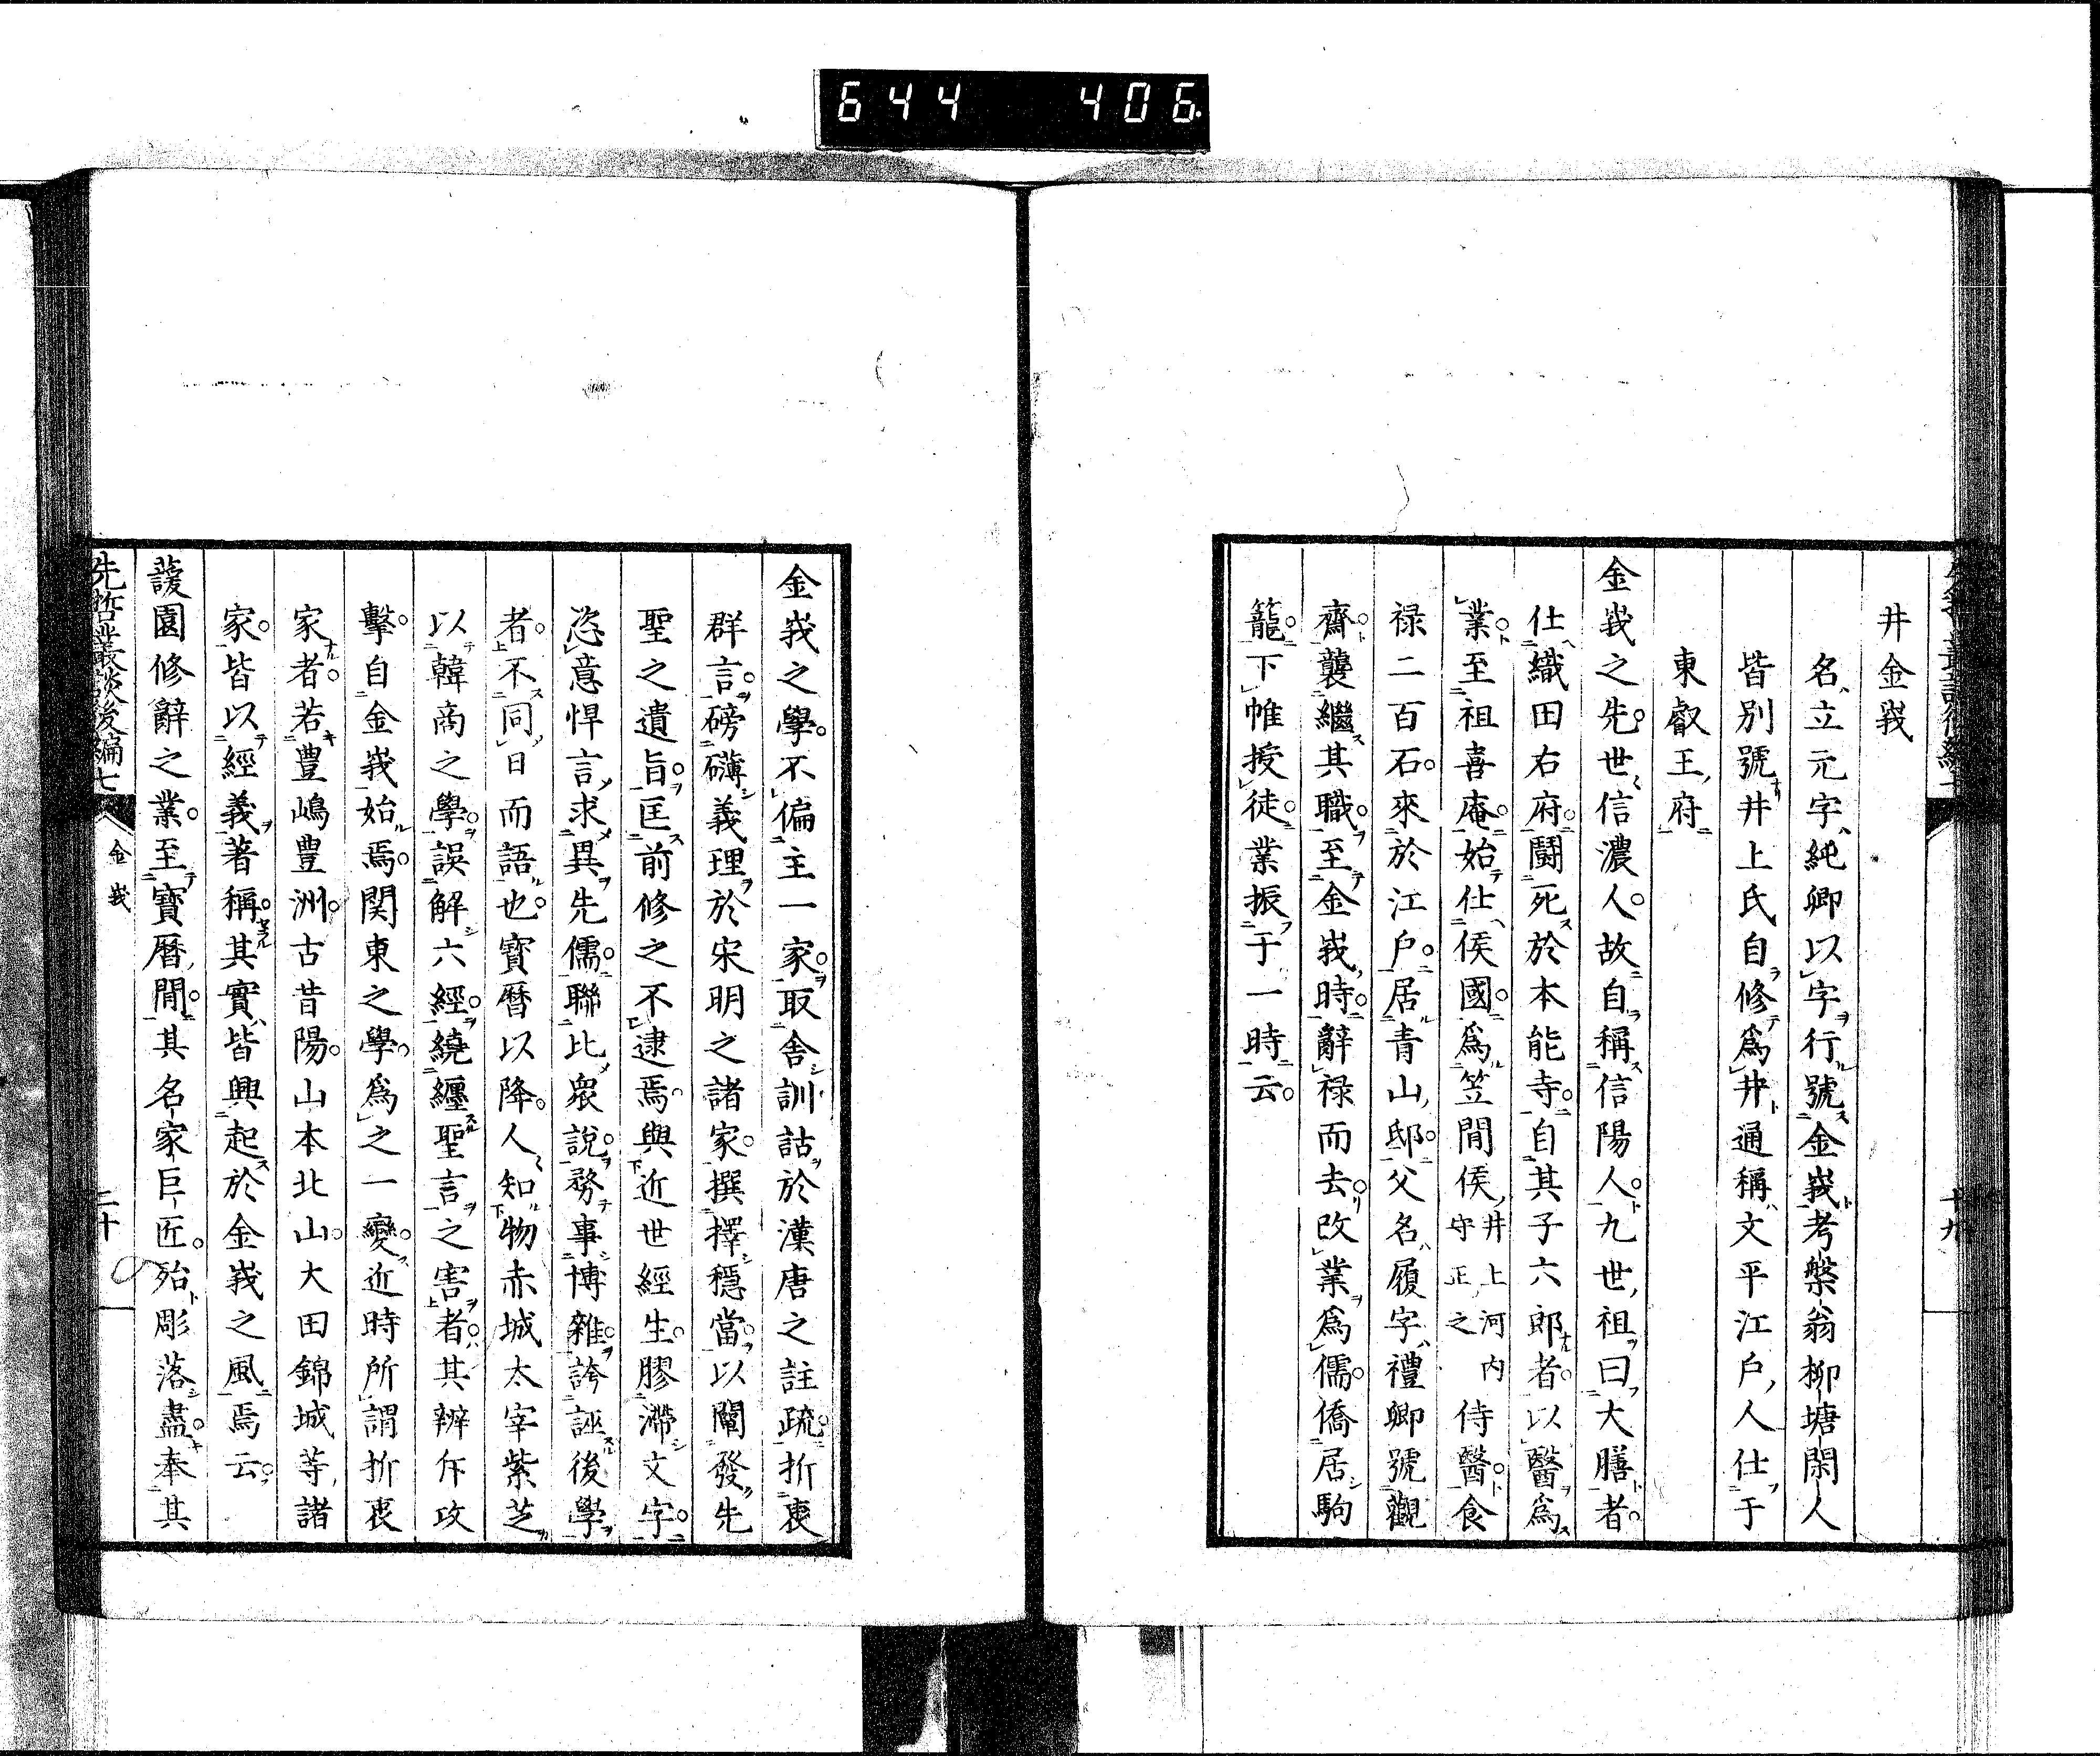 644 406
井金峩
名立元字純卿以字行號金峩考槃翁柳塘閑人
皆別號井上氏自修爲井通稱文平江戶人仕于
東叡王府
金峩之先世信濃人故自稱信陽人九世祖曰大膳者
仕織田右府鬪死於本能寺自其子六郎者以醫爲
業至祖喜庵始仕侯國爲笠間侯井上河内守正之侍醫食
禄二百石來於江戶居青山邸父名履字禮卿號觀
齋襲繼其職至金峩時辭禄而去改業爲儒僑居駒
籠下帷授徒業振于一時云
金峩之學不偏主一家取舍訓詁於漢唐之註疏折衷
群言磅礴義理於宋明之諸家撰擇穩當以闡發先
聖之遺旨匡前修之不逮焉與近世經生膠滯文字
恣意悍言求異先儒聯比衆說務事博雜誇誣後學
者不同日而語也寶暦以降人知物赤城太宰紫芝
以韓商之學誤解六經繞纏聖言之害者其辨斥攻
擊自金峩始焉関東之學爲之一變近時所謂折衷
家者若豊嶋豊洲古昔陽山本北山大田錦城等諸
家皆以經義著稱其實皆興起於金峩之風焉云
蘐園修辭之業至寶暦間其名家巨匠殆彫落盡奉其
先哲叢談後編七
金峩
二十